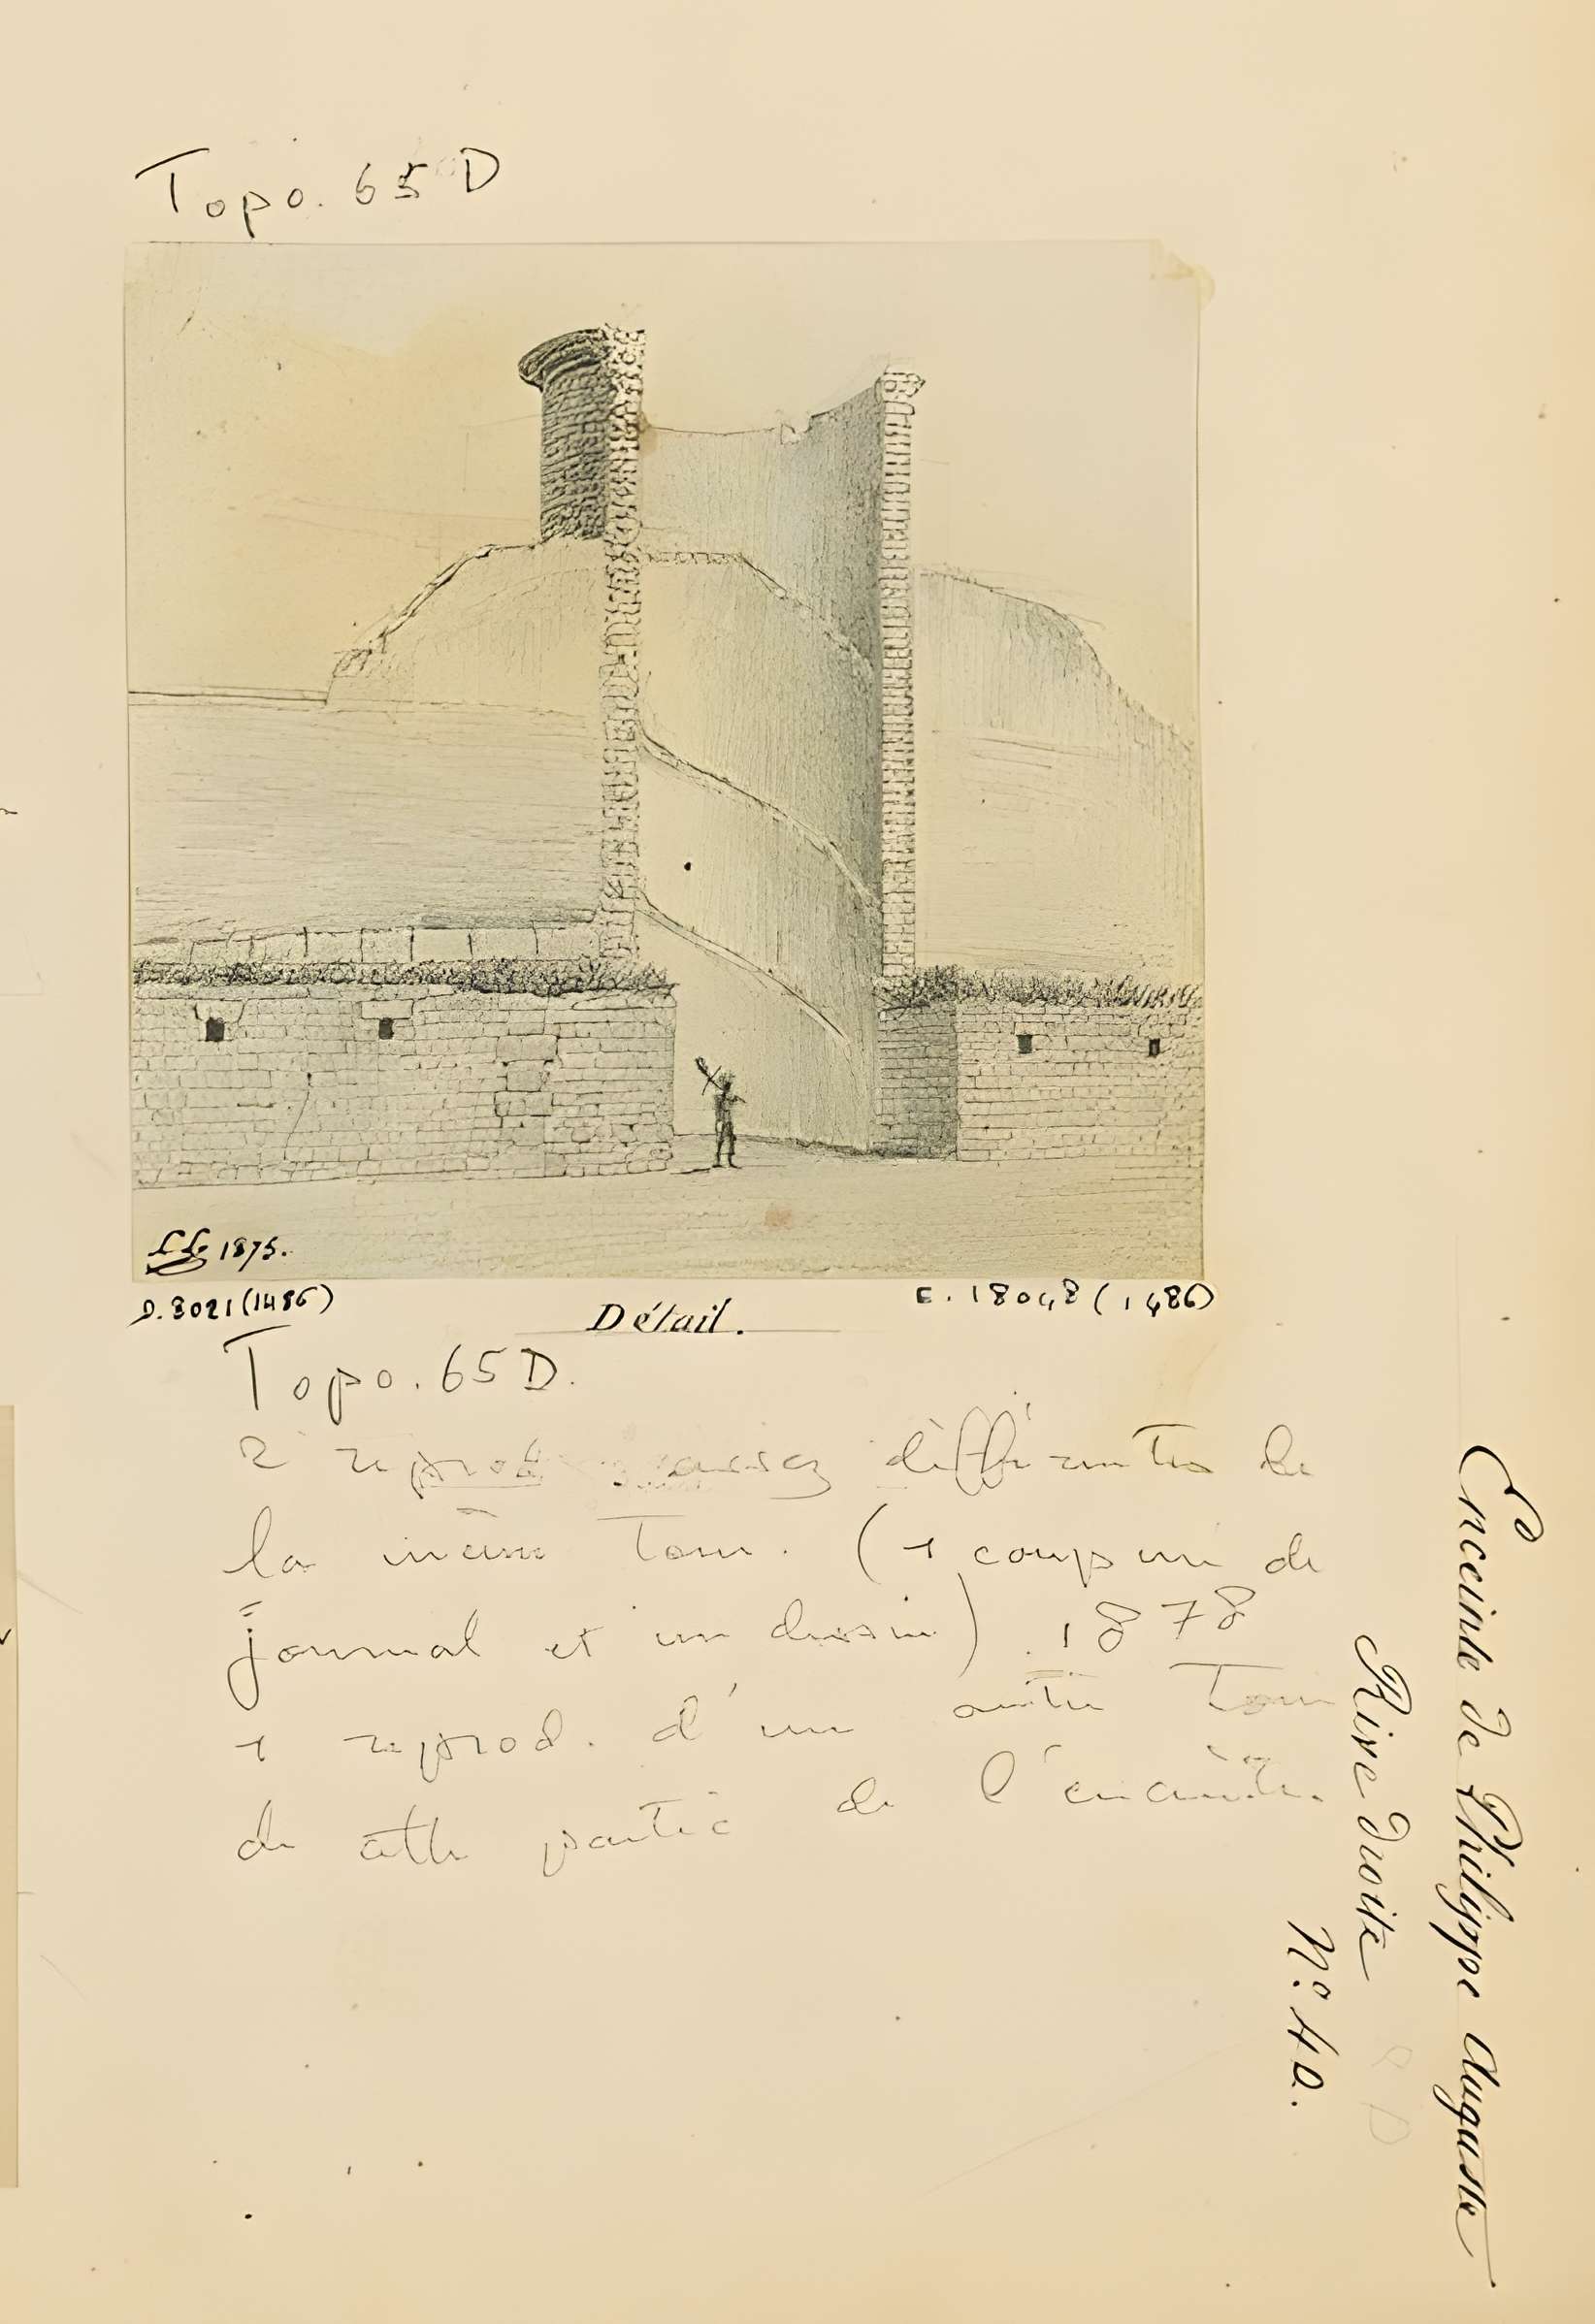 Topo. 65 D
LL 1875.
D. 8021 (1486)
E. 18048 (1486)
Détail.
Topo. 65 D.
2 reprod assez différentes de
la même Tour. (+ coupure de
journal et un dessin) . 1878
+ reprod. d'une autre Tour
de cette partie de l'enceinte.
Enceinte de Philippe Auguste
Rive droite
N.º 40.